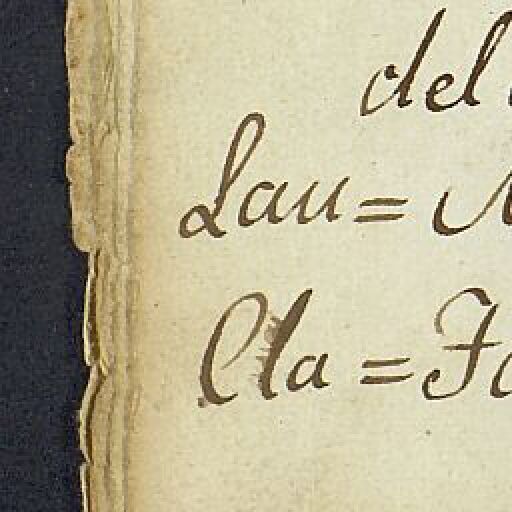 del
Lau=
Cla=